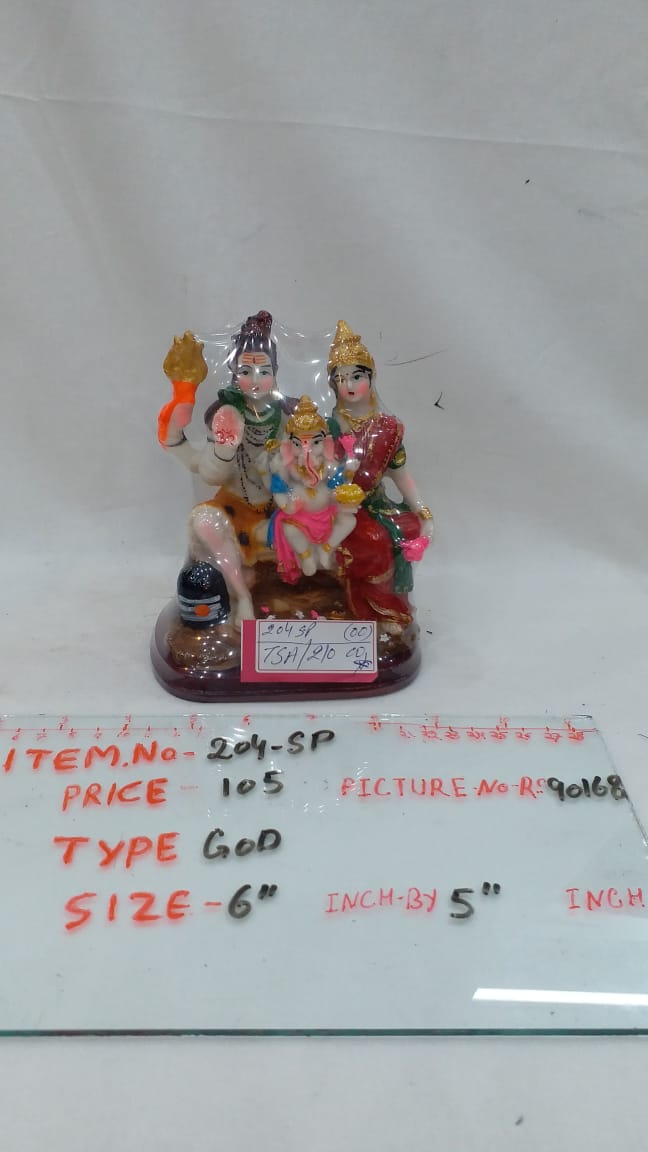 204 SP (00)
TSA/210 00
ITEM.No- 204-SP
PRICE - 105 PICTURE-No-RS 90168
TYPE GOD
SIZE-6" INCH-BY 5" INCH